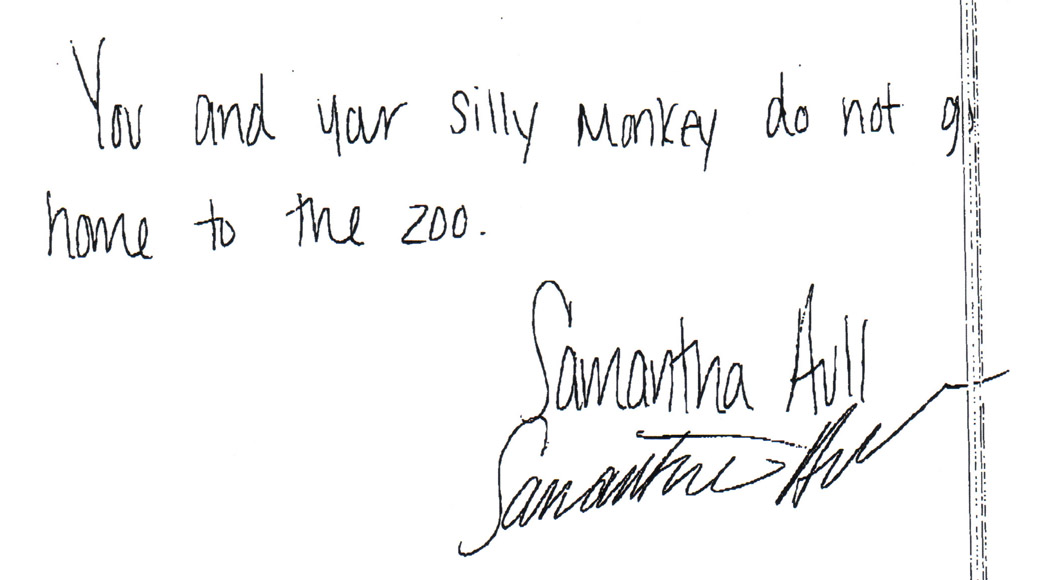 You and your silly Monkey do not go
home to the zoo.
Samantha Aull
Samantha Aull